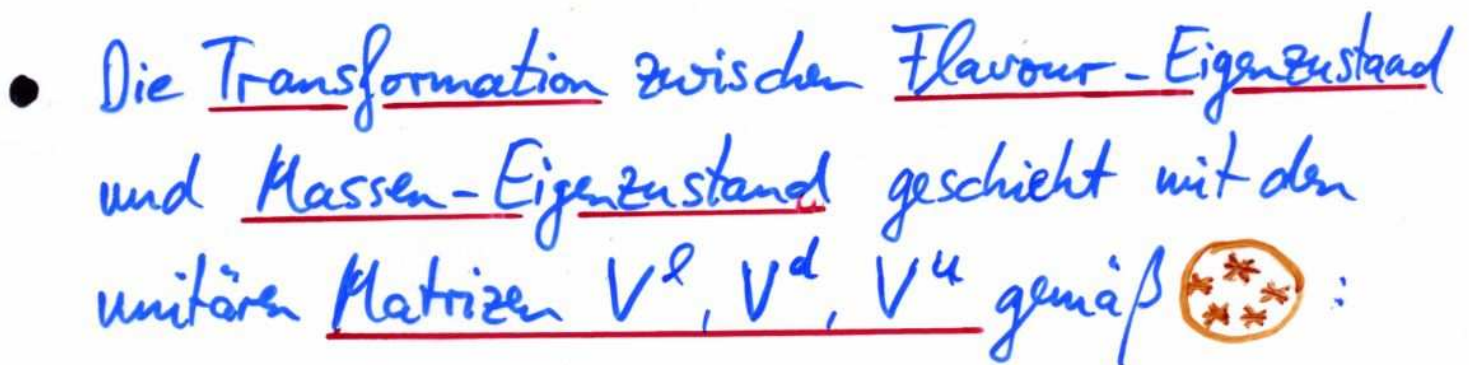 • Die Transformation zwischen Flavour-Eigenzustand
und Massen-Eigenzustand geschieht mit den
unitären Matrizen V^l, V^d, V^u gemäß :